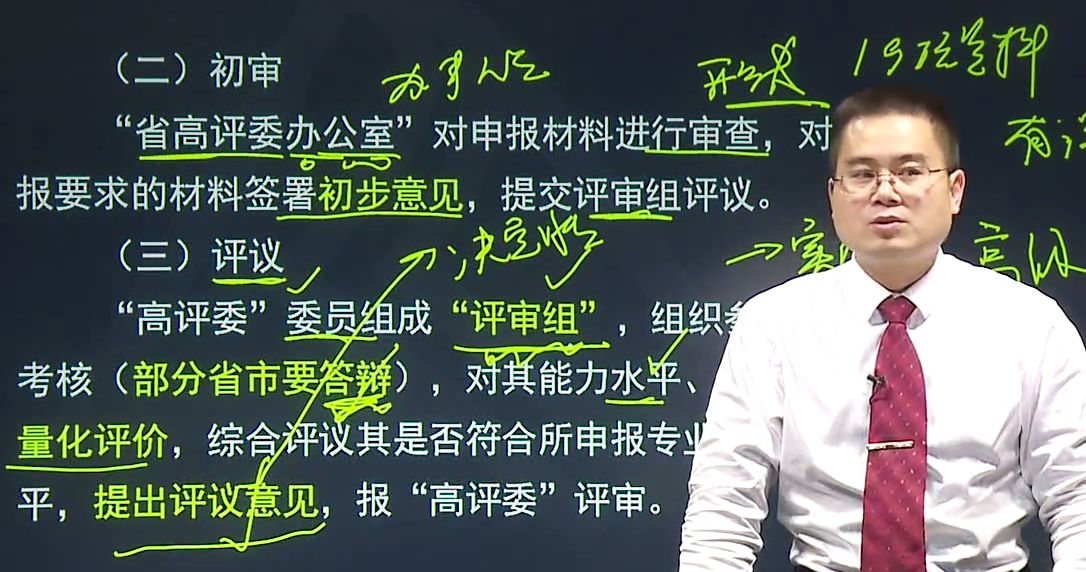 （二）初审
办事人员
形式
19项资料
“省高评委办公室”对申报材料进行审查，对
报要求的材料签署初步意见，提交评审组评议。
（三）评议
决定性
高级
“高评委”委员组成“评审组”，组织
考核（部分省市要答辩），对其能力水平、
量化评价，综合评议其是否符合所申报专业
平，提出评议意见，报“高评委”评审。